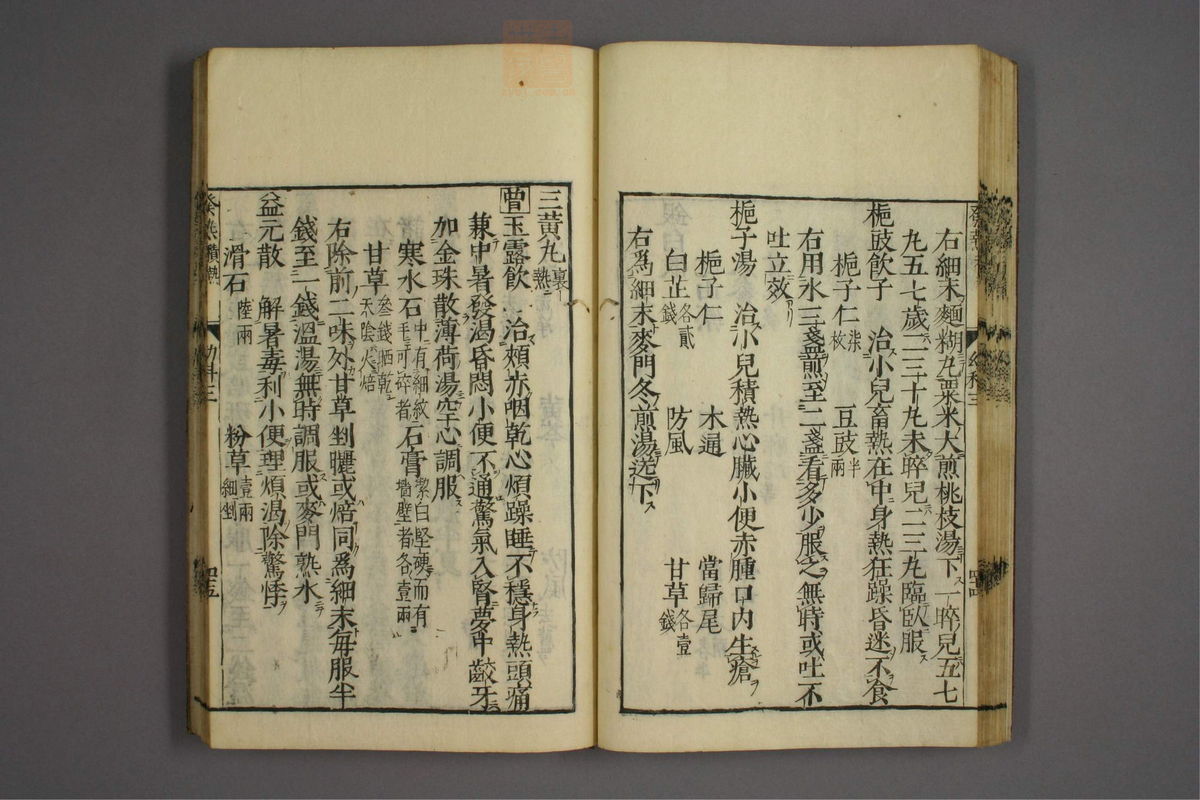 右細末麵糊丸粟米大煎桃枝湯下一晬兒五七
丸五七歲二三十丸未晬兒二三丸臨臥服
梔豉飲子　治小兒畜熱在中身熱狂躁昏迷不食
梔子仁柒枚　豆豉半兩
右用水三盞煎至二盞看多少服之無時或吐不
吐立效
梔子湯　治小兒積熱心臟小便赤腫口內生瘡
梔子仁　木通　當歸尾
白芷各貳錢　防風　甘草各壹錢
右爲細末麥門冬煎湯送下
幼科三
三黃丸裏熱
曾玉露飲　治頰赤咽乾心煩躁睡不穩身熱頭痛
兼中暑發渴昏悶小便不通驚氣入腎夢中齩牙
加金珠散薄荷湯空心調服
寒水石中有細紋毛可碎者　石膏潔白堅硬而有墻壁者各壹兩
甘草叁錢晒乾天陰火焙
右除前二味外甘草剉曬或焙同爲細末每服半
錢至一錢溫湯無時調服或麥門熟水
益元散　解暑毒利小便理煩渴除驚悸
滑石陸兩　粉草壹兩細剉
幼科三